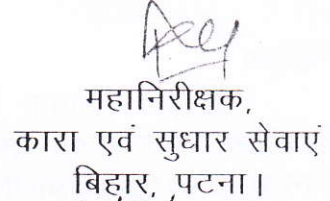 महानिरीक्षक,
कारा एवं सुधार सेवाएं
बिहार, पटना।